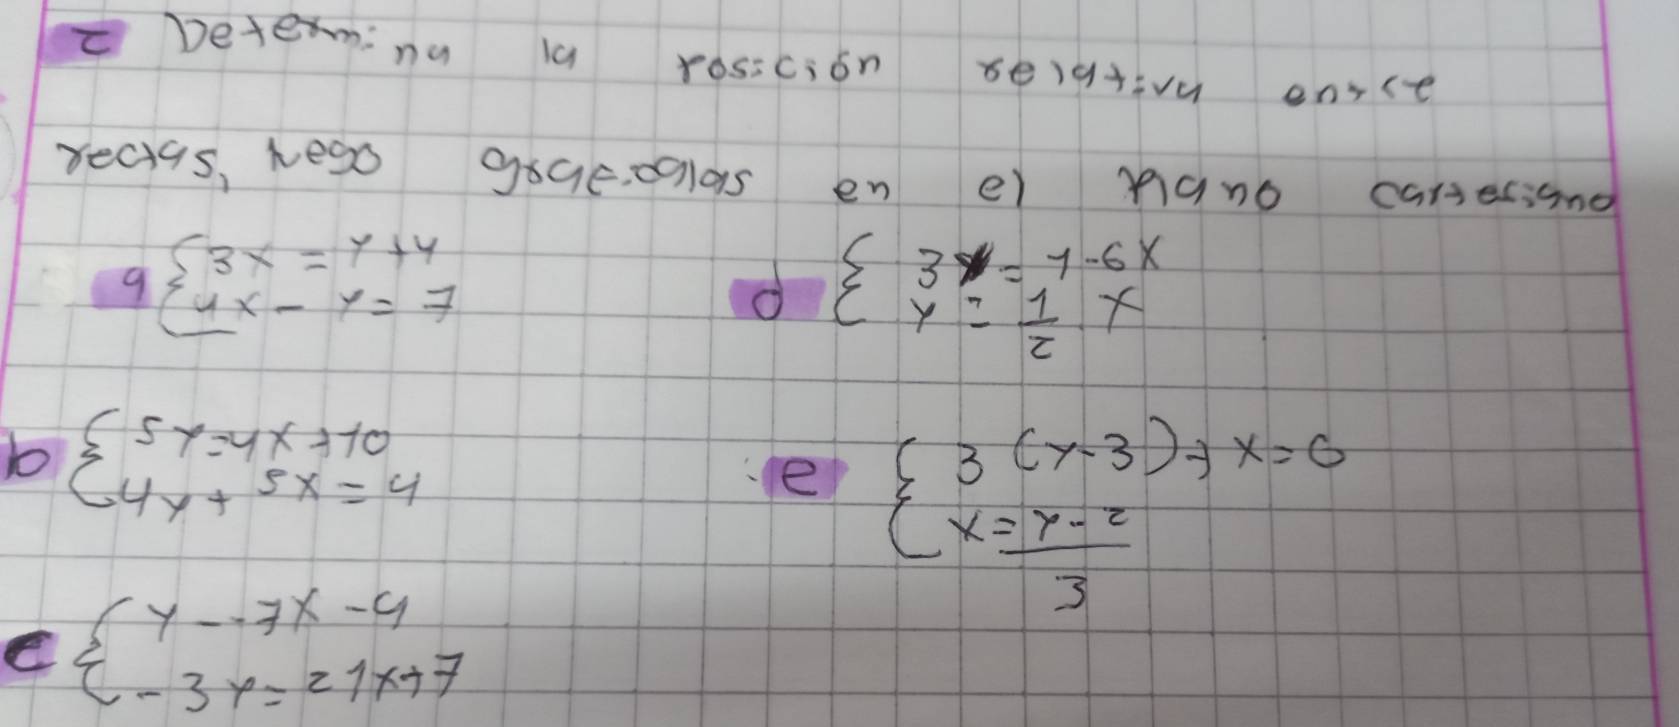 2 Determina la posición relativa entre
rectas, luego graficalas en el plano cartesiano
a { 3x = y+4
4x - y = 7
d { 3y = 1-6x
y = 1/2 x
b { 5y=4x+10
4y+5x=4
e { 3(y-3)+x=6
x = y-2
3
c { y--7x-4
-3y=21x+7